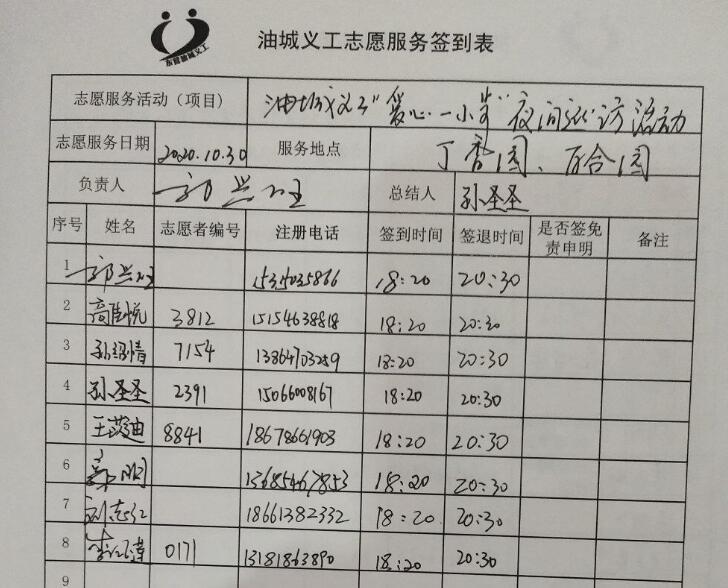 东营油城义工
油城义工志愿服务签到表
志愿服务活动（项目） 油城义工"爱心一小步"夜间走访活动
志愿服务日期 2020.10.30 服务地点 丁香园、百合园
负责人 总结人 孙圣圣
序号 姓名 志愿者编号 注册电话 签到时间 签退时间 是否签免责申明 备注
1 18:20 20:30
2 3812 15154638818 18:20 20:30
3 7154 13864703259 18:20 20:30
4 孙圣圣 2391 15066008167 18:20 20:30
5 8841 18678661903 18:20 20:30
6 13685467853 18:20 20:30
7 刘志红 18661382332 18:20 20:30
8 0171 13181863890 18:20 20:30
9